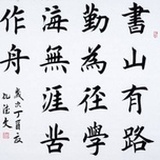 書山有路
勤為徑學
海無涯苦
作舟
歲次丁酉夏